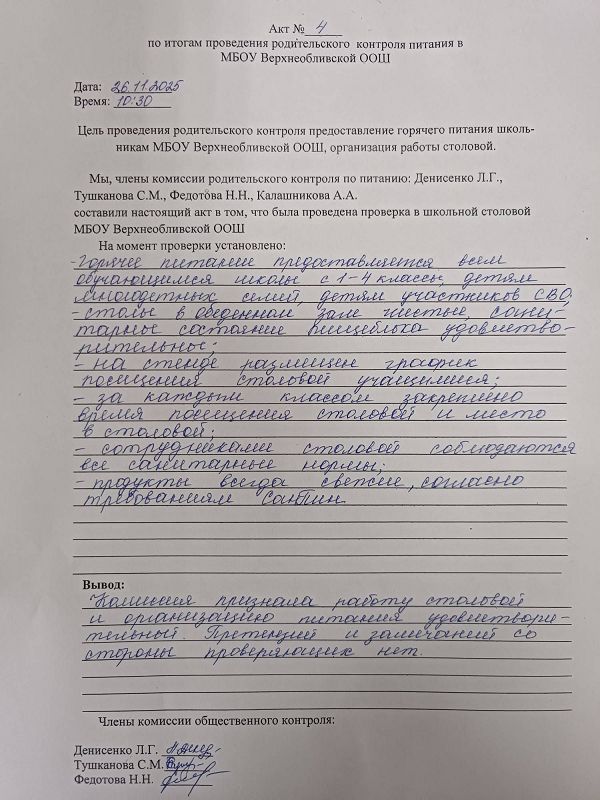 Акт № 4
по итогам проведения родительского контроля питания в
МБОУ Верхнеобливской ООШ
Дата: 26.11.2025
Время: 10:30
Цель проведения родительского контроля предоставление горячего питания школь-
никам МБОУ Верхнеобливской ООШ, организация работы столовой.
Мы, члены комиссии родительского контроля по питанию: Денисенко Л.Г.,
Тушканова С.М., Федотова Н.Н., Калашникова А.А.
составили настоящий акт в том, что была проведена проверка в школьной столовой
МБОУ Верхнеобливской ООШ
На момент проверки установлено:
- Горячее питание предоставляется всем
обучающимся школы с 1-4 классы, детям
многодетных семей, детям участников СВО;
- столы в обеденном зале чистые, сани-
тарное состояние пищеблока удовлетво-
рительное;
- на стенде размещен график
посещения столовой учащимися;
- за каждым классом закреплено
время посещения столовой и место
в столовой;
- сотрудниками столовой соблюдаются
все санитарные нормы;
- продукты всегда свежие, согласно
требованиям СанПин
Вывод:
Комиссия признала работу столовой
и организацию питания удовлетвори-
тельный. Претензий и замечаний со
стороны проверяющих нет.
Члены комиссии общественного контроля:
Денисенко Л.Г.
Тушканова С.М.
Федотова Н.Н.